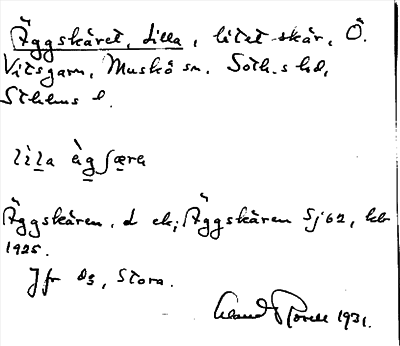 Äggskäret, Lilla, litet skär, Ö.
Vitsgarn, Muskö sn. Soth.s hd,
Sthlms l.
lìla ägʃæra
Äggskären, d ek; Äggskären Sj 62, kb
1925.
Jfr d3, Stora.
1931.